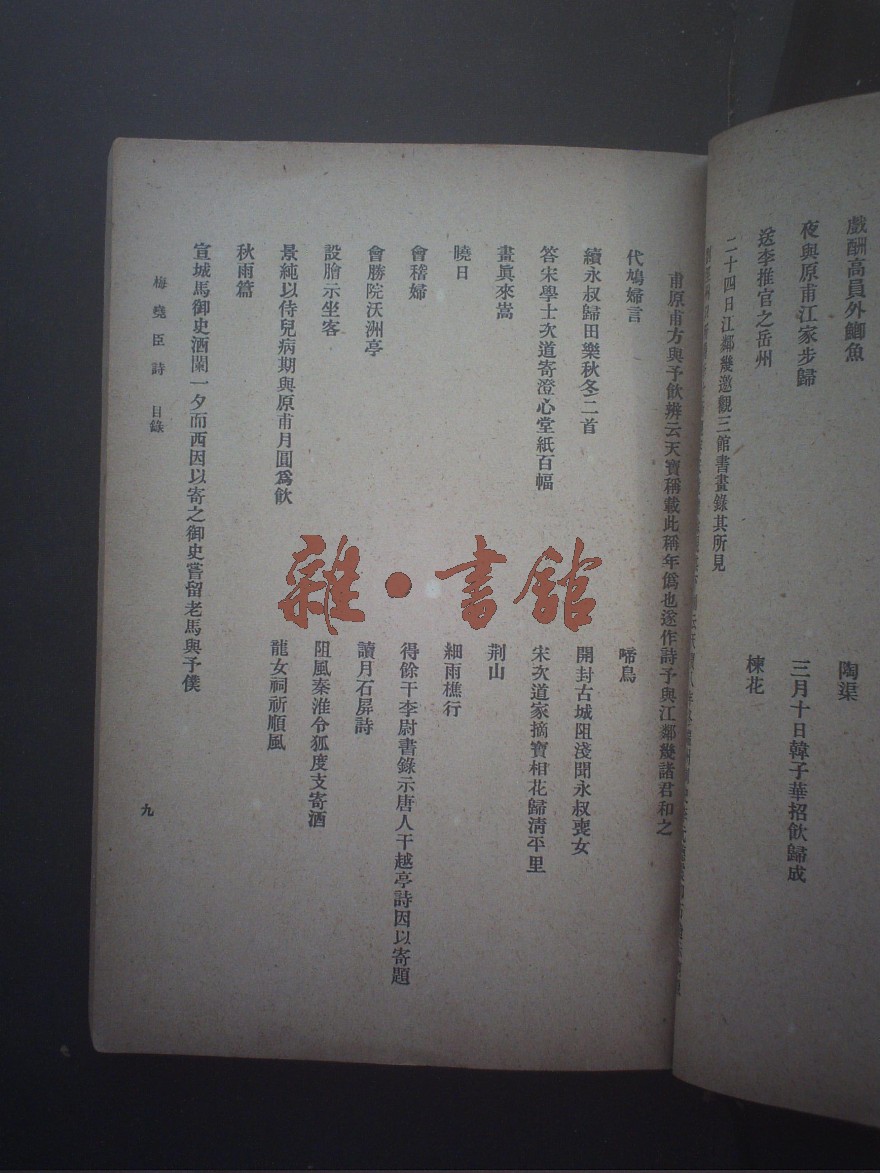 戲酬高員外鯽魚
陶渠
夜與原甫江家步歸
三月十日韓子華招飲歸成
送李推官之岳州
楝花
二十四日江鄰幾邀觀三館書畫錄其所見
甫原甫方與予飲辨云天寶稱載此稱年僞也遂作詩予與江鄰幾諸君和之
代鳩婦言
啼鳥
續永叔歸田樂秋冬二首
開封古城阻淺聞永叔喪女
答宋學士次道寄澄心堂紙百幅
宋次道家摘寶相花歸淸平里
畫眞來嵩
荆山
曉日
細雨樵行
會稽婦
得餘干李尉書錄示唐人干越亭詩因以寄題
會勝院沃洲亭
讀月石屛詩
設膾示坐客
阻風秦淮令狐度支寄酒
景純以侍兒病期與原甫月圓爲飮
龍女祠祈順風
秋雨篇
宣城馬御史酒闌一夕而西因以寄之御史嘗留老馬與予僕
梅堯臣詩 目錄
九
雜·書館